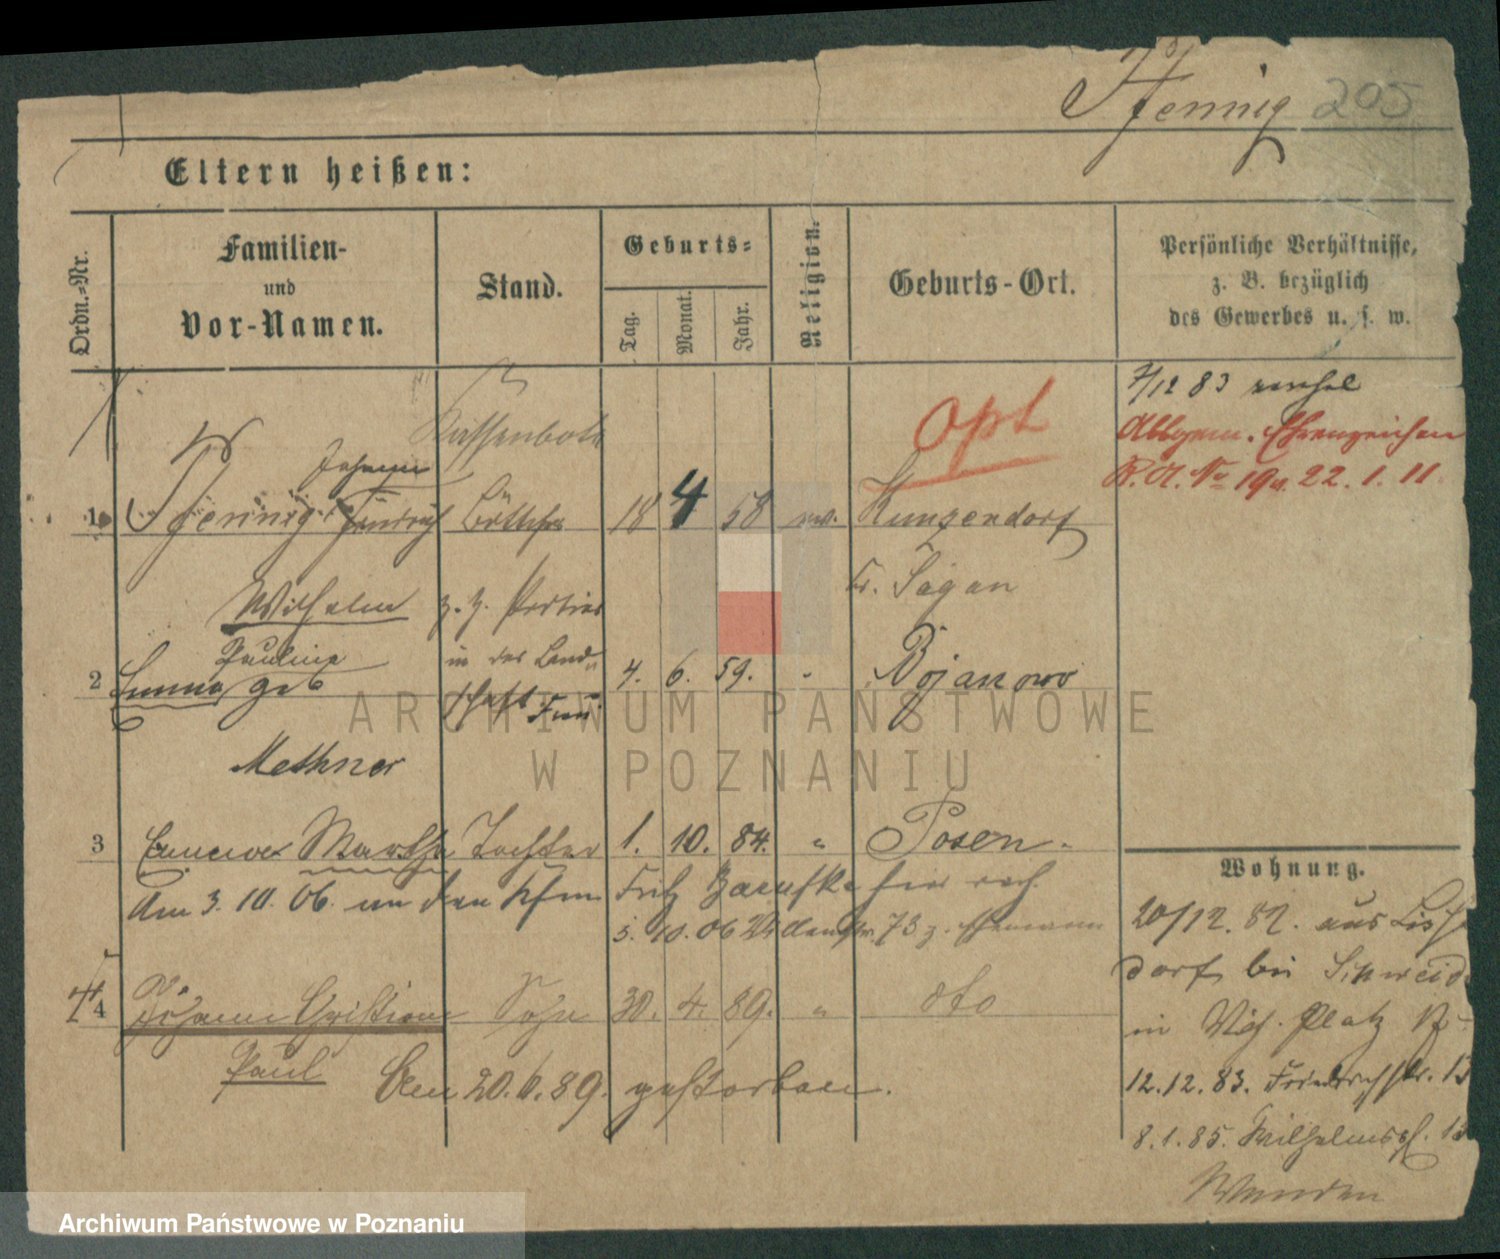 Pfennig 205
Eltern heißen:
Ordn.-Nr.
Familien-
und
Vor-Namen.
Stand.
Geburts-
Tag.
Monat.
Jahr.
Religion.
Geburts-Ort.
Persönliche Verhältnisse,
z. B. bezüglich
des Gewerbes u. s. w.
7/12 83
Kassenbote
opt
Allgem. Ehrenzeichen
22. 1. 11.
Johann
1 Pfennig Heinrich Böttcher 18 4 58 ev. Kunzendorf
Wilhelm z. Z. Portier Kr. Sagan
Pauline in der Land-
2 Emma geb 4. 6. 59. " Bojanowo
schaft
Methner
3 Martha Tochter 1. 10. 84. " Posen.
Wohnung.
Am 3. 10. 06. an den Kfm Fritz
5. 10. 06 73 z. Ehemann
20/12. 82. aus
dorf bei Schweid
4 Johann Christian Sohn 30. 4. 89. " dto
in Platz
Paul
Am 20. 6. 89. gestorben.
12.12.83. Friedrichstr. 13
8.1.85. Wilhelmspl.
ARCHIWUM PAŃSTWOWE
W POZNANIU
Archiwum Państwowe w Poznaniu